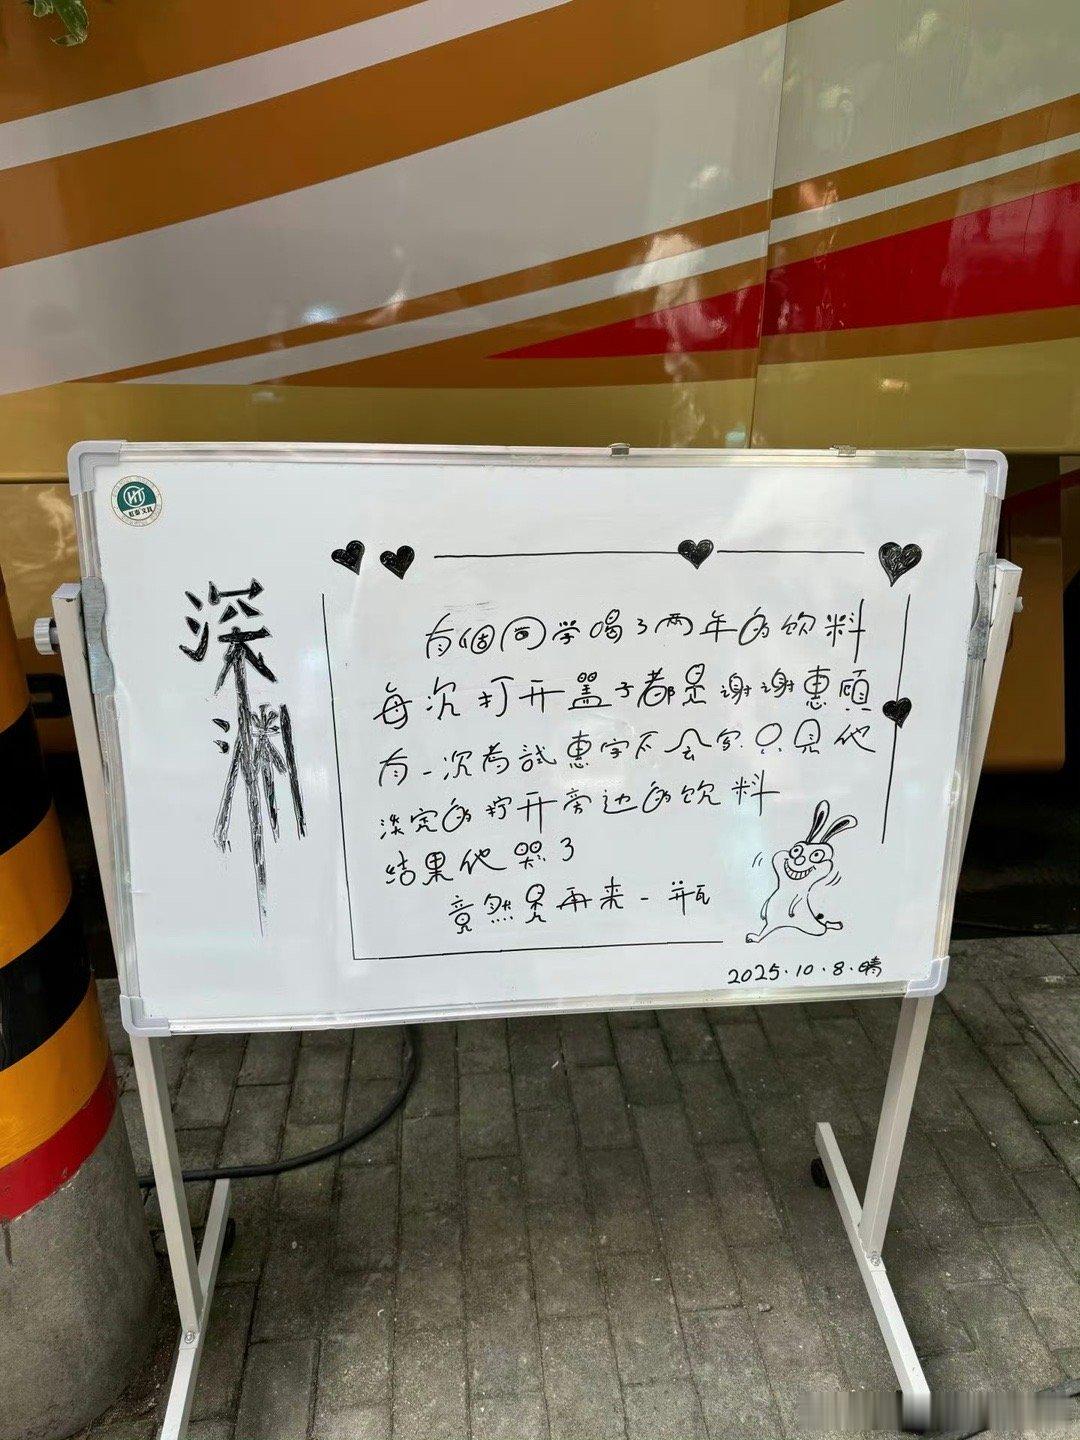 虹泰文具
深渊
有個同学喝了两年的饮料
每次打开盖子都是谢谢惠顾
有一次考試惠字不会写只見他
淡定的拧开旁边的饮料
结果他哭了
竟然是再来一瓶
2025.10.8.晴